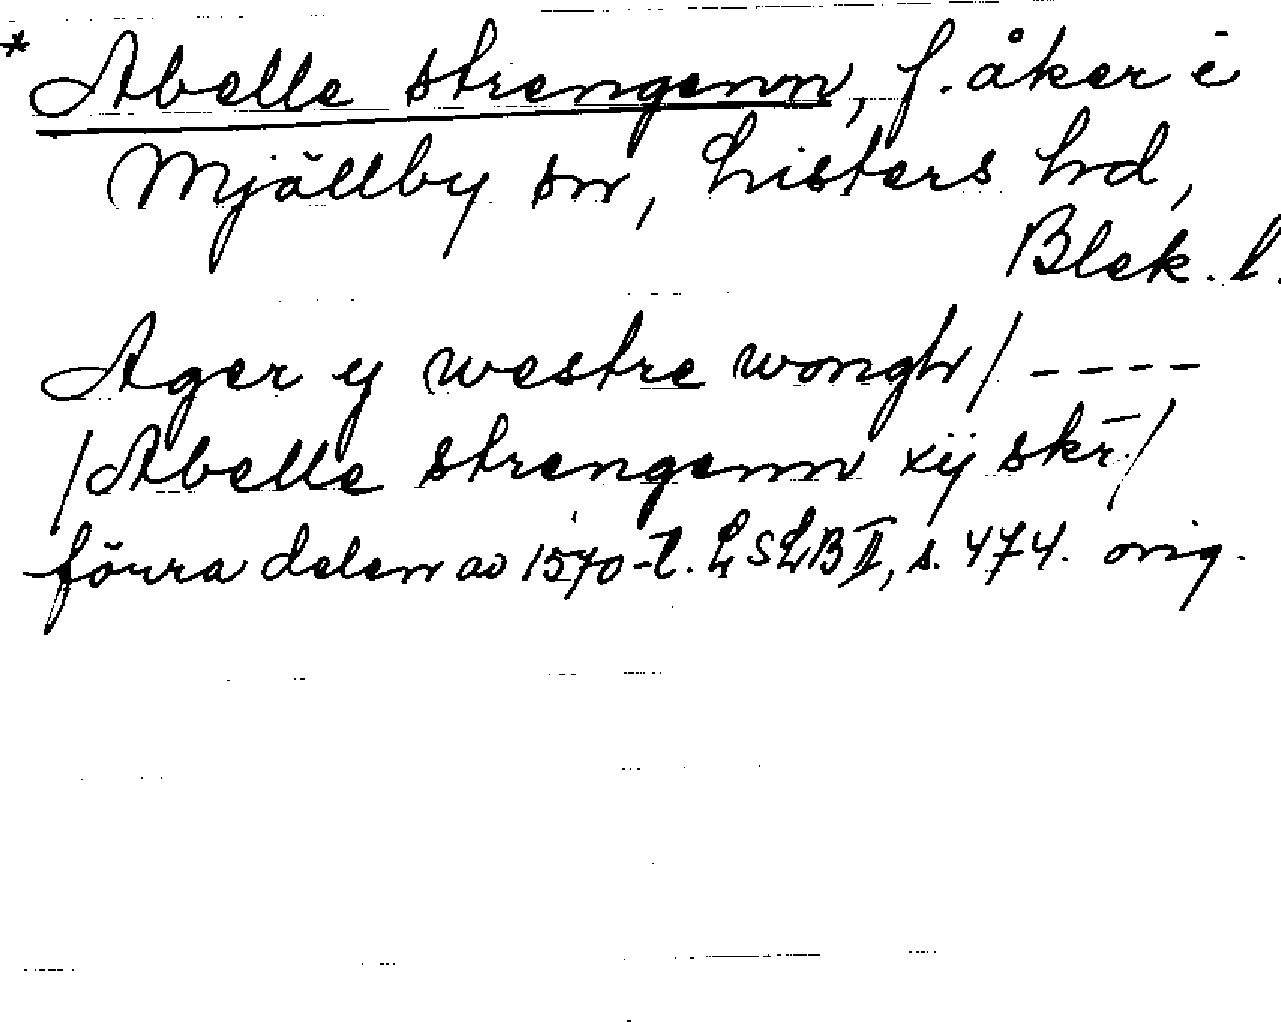 * Abelle strengenn, f. åker i
Mjällby sn, Listers hd,
Blek. l.
Ager y westre wongh / - - - -
/ Abelle strengenn xij skr̄ /
förra delen av 1570-t. LSLB II, s. 474. orig.